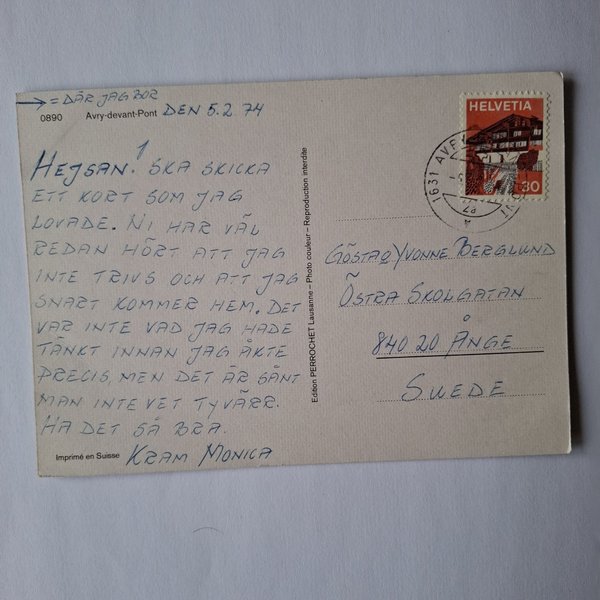 → = DÄR JAG BOR
0890 Avry-devant-Pont DEN 5.2 74
HEJSAN! SKA SKICKA
ETT KORT SOM JAG
LOVADE. NI HAR VÄL
REDAN HÖRT ATT JAG
INTE TRIVS OCH ATT JAG
SNART KOMMER HEM. DET
VAR INTE VAD JAG HADE
TÄNKT INNAN JAG ÅKTE
PRECIS, MEN DET ÄR SÅNT
MAN INTE VET TYVÄRR.
HA DET SÅ BRA.
KRAM MONICA
Imprimé en Suisse
Edition PERROCHET Lausanne – Photo couleur – Reproduction interdite
HELVETIA
30
1631 AVRY
GÖSTA o YVONNE BERGLUND
ÖSTRA SKOLGATAN
840 20 ÅNGE
SWEDE